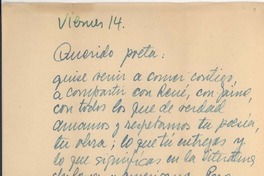 Viernes 14.
Querido poeta:
quise venir a comer contigo,
a compartir con René, con Jaime,
con todos los que de verdad
amamos y respetamos tu poesía,
tu obra; lo que tú entregas y
lo que significas en la literatura
chilena y americana. Pero